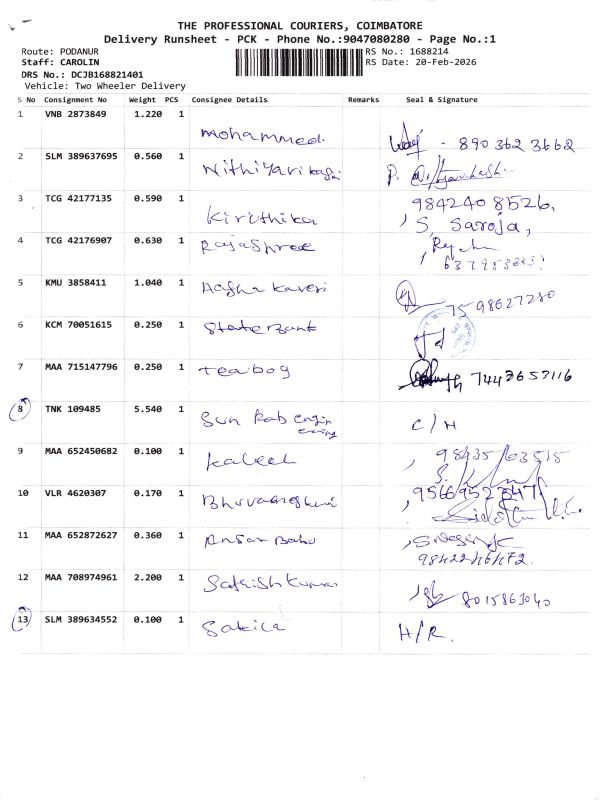 THE PROFESSIONAL COURIERS, COIMBATORE
Delivery Runsheet - PCK - Phone No.:9047080280 - Page No.:1
Route: PODANUR RS No.: 1688214
Staff: CAROLIN RS Date: 20-Feb-2026
DRS No.: DCJB168821401
Vehicle: Two Wheeler Delivery
S No Consignment No Weight PCS Consignee Details Remarks Seal & Signature
1 VNB 2873849 1.220 1 mohammed. - 890 362 3662
2 SLM 389637695 0.560 1 P.
3 TCG 42177135 0.590 1 Kiruthika 984240 8526, S. Saroja,
4 TCG 42176907 0.630 1 Rajashree
5 KMU 3858411 1.040 1 Kaveri 7598627280
6 KCM 70051615 0.250 1 State Bank
7 MAA 715147796 0.250 1 teabog 7443657116
8 TNK 109485 5.540 1 Sun Rab engin
eering C/H
9 MAA 652450682 0.100 1 Kaleel 98435/03515
10 VLR 4620307 0.170 1
11 MAA 652872627 0.360 1 Ansar Babu
9842246472.
12 MAA 708974961 2.200 1 Sathish Kumar 8015863040
13 SLM 389634552 0.100 1 Sakila H/R.